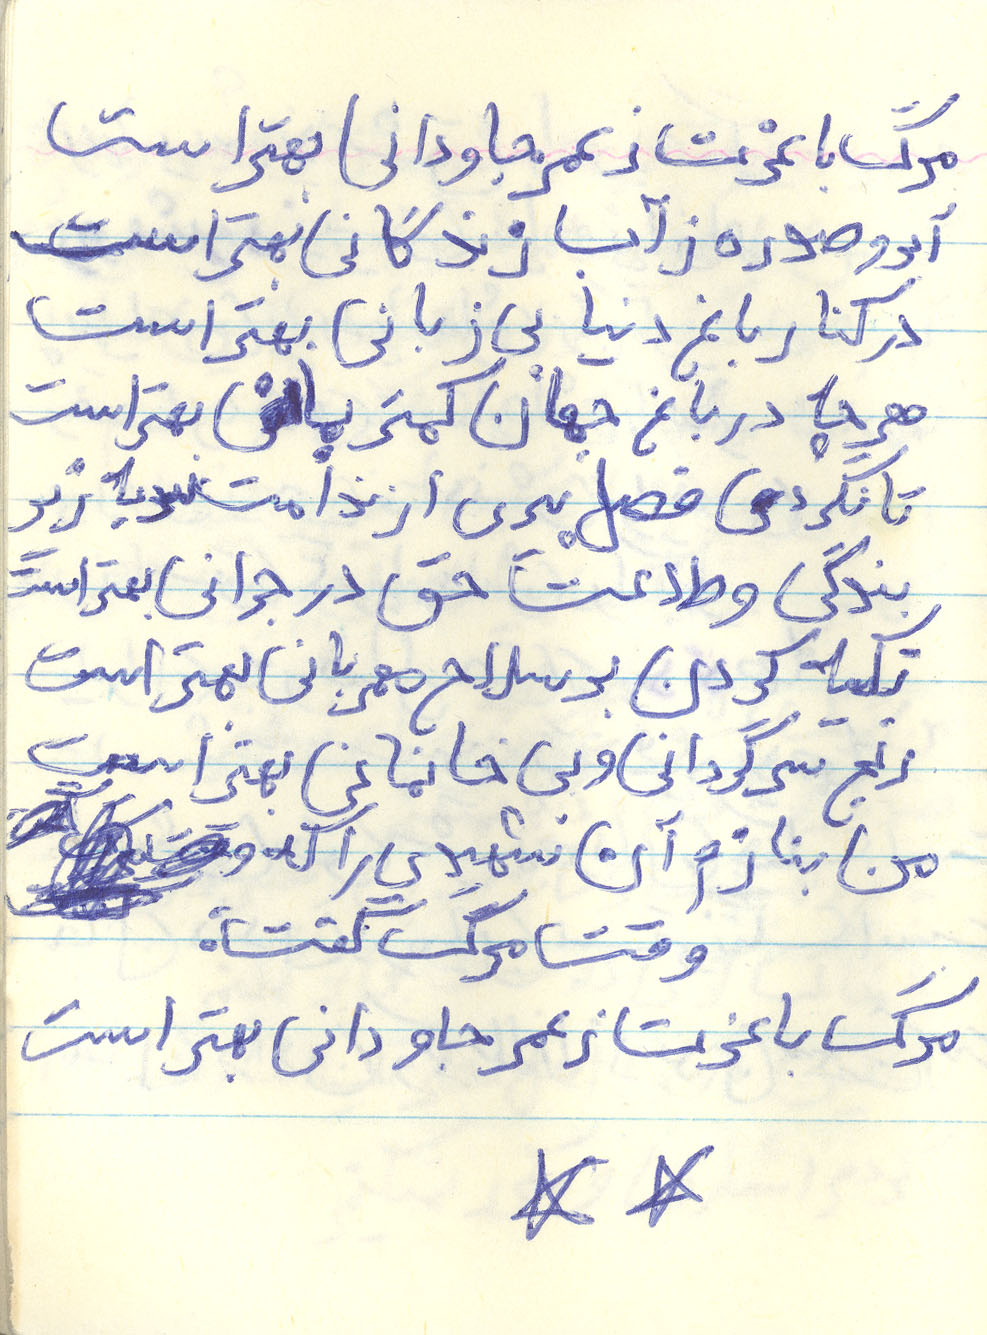 مرگ با عزت ز عمر جاودانی بهتر است
آبرو صد ره ز آب زندگانی بهتر است
در کنار باغ دنیا بی زبانی بهتر است
هر چه در باغ جهان کمتر بمانی بهتر است
تا نگردی فصل پیری از ندامت
بندگی و طاعت حق در جوانی بهتر است
تکیه کردن بر سلاح مهربانی بهتر است
رنج سرگردانی و بی خانمانی بهتر است
من بنازم آن شهیدی را که
وقت مرگ گفت:
مرگ با عزت ز عمر جاودانی بهتر است